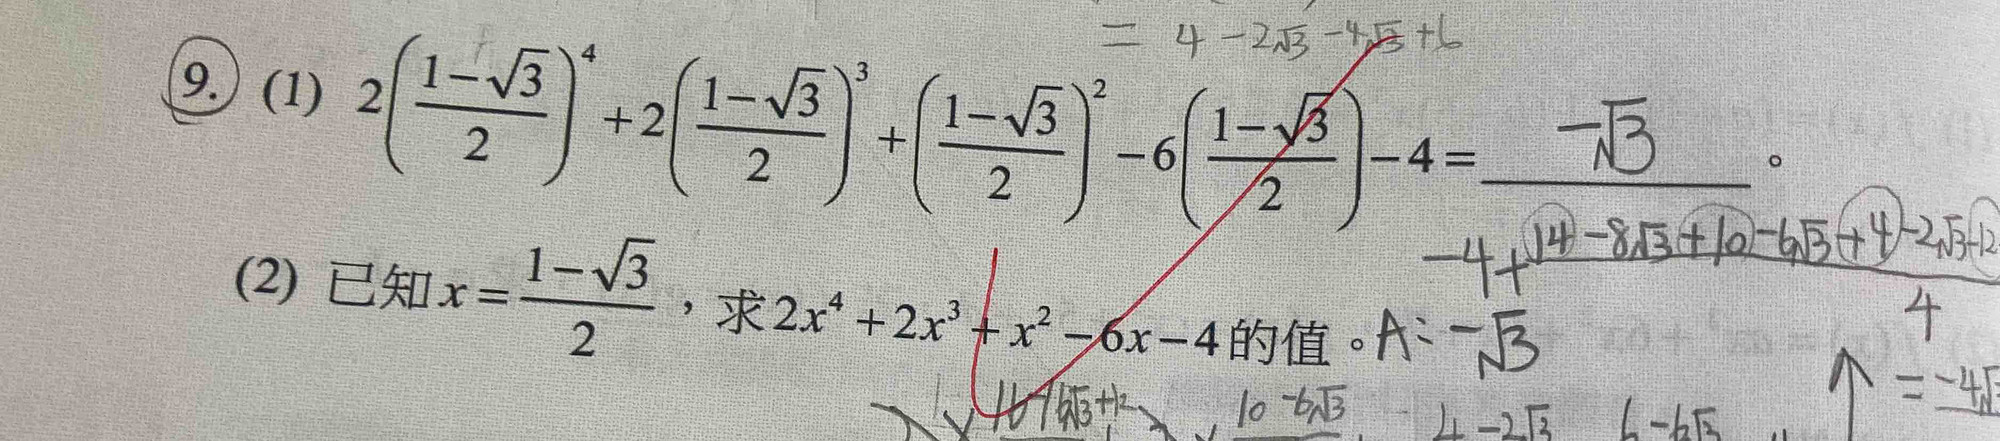 = 4 - 2√3 - 4√3 + 6
9. (1) 2((1-√3)/2)⁴ + 2((1-√3)/2)³ + ((1-√3)/2)² - 6((1-√3)/2) - 4 = -√3 。
-4 + (14 - 8√3 + 10 - 6√3 + 4 - 2√3 - 12)/4
(2) 已知 x = (1-√3)/2 , 求 2x⁴ + 2x³ + x² - 6x - 4 的值。A: -√3
10 - 6√3
4 - 2√3
6 - 6√3